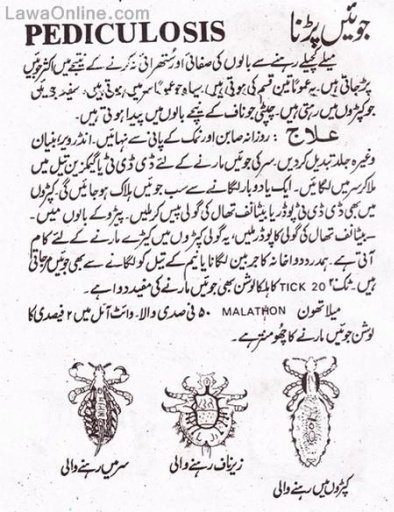 LawaOnline.com
PEDICULOSIS جوئیں پڑنا
میلے کچیلے رہنے سے بالوں کی صفائی اور ستھرائی نہ کرنے کے نتیجے میں اکثر جوئیں
پڑ جاتی ہیں۔ یہ عموماً تین قسم کی ہوتی ہیں۔ سیاہ جو عموماً سر میں ہوتی ہیں، سفید
جو کپڑوں میں رہتی ہیں۔ چپٹی جو ناف کے نیچے بالوں میں پیدا ہوتی ہیں۔
علاج : روزانہ صابن اور نمک کے پانی سے نہائیں۔ انڈرویر، بنیان
وغیرہ جلد تبدیل کر دیں۔ سر کی جوئیں مارنے کے لئے ڈی ڈی ٹی یا گیمگزین تیل میں
ملا کر سر میں لگائیں۔ ایک یا دو بار لگانے سے سب جوئیں ہلاک ہو جائیں گی۔ کپڑوں
میں بھی ڈی ڈی ٹی پوڈر یا بیٹا نف تھال کی گولی پیس کر ملیں۔ پیڑو کے بالوں میں۔
بیٹا نف تھال کی گولی کا پوڈر ملیں، یہ گولی کپڑوں میں کیڑے مارنے کے لئے کام
آتی ہے۔ ہمدرد دواخانہ کا جربین لگانا یا نیم کے تیل کو لگانے سے بھی جوئیں مر جاتی
ہیں۔ ٹک ۲۰ TICK 20 کا ہلکا لوشن بھی جوئیں مارنے کی مفید دوا ہے۔
میلاتھون MALATHON ۵۰ فی صدی والا۔ وائٹ آئل میں ۲ فیصدی کا
لوشن جوئیں مارنے کا چھو منتر ہے۔
سر میں رہنے والی
زیر ناف رہنے والی
کپڑوں میں رہنے والی